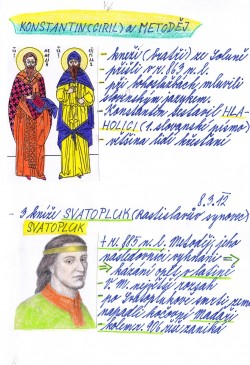 KONSTANTIN (CIRIL) a METODĚJ
- kněží (bratři) ze Soluně
- přišli v r. 863 n. l.
- při bohoslužbách mluvili
slovanským jazykem.
- Konstantin sestavil HLA-
HOLICI (1. slovanské písmo)
- většina lidí křesťané
8.3.12
- 3. kníže SVATOPLUK (Rastislavův synovec)
SVATOPLUK
+ r. 885 n. l. Metoděj, jeho
následovníci vyhnáni
kázání opět v latině
- V. M. největší rozsah
- po Svatoplukově smrti zemi
napadli kočovní Maďaři
- kolem r. 906 říše zaniká